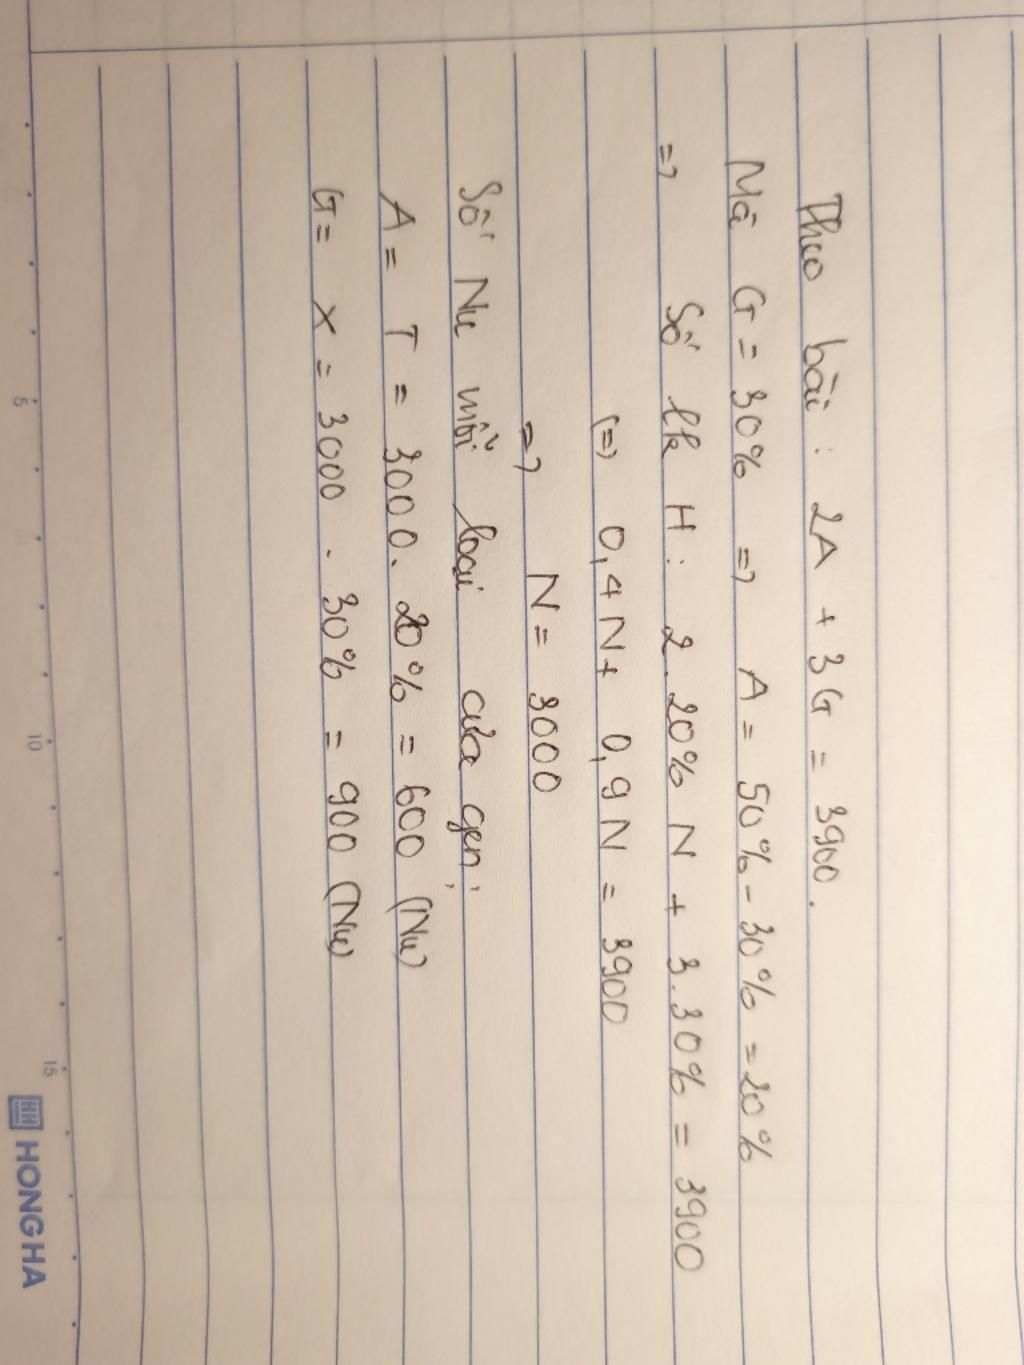 Theo bài : 2A + 3G = 3900.
Mà G = 30% => A = 50% - 30% = 20%
=> Số lk H : 2.20% N + 3.30% = 3900
(=) 0,4N + 0,9N = 3900
=> N = 3000
Số Nu mỗi loại của gen:
A = T = 3000. 20% = 600 (Nu)
G = X = 3000 . 30% = 900 (Nu)
5 10 15
HH HONG HA